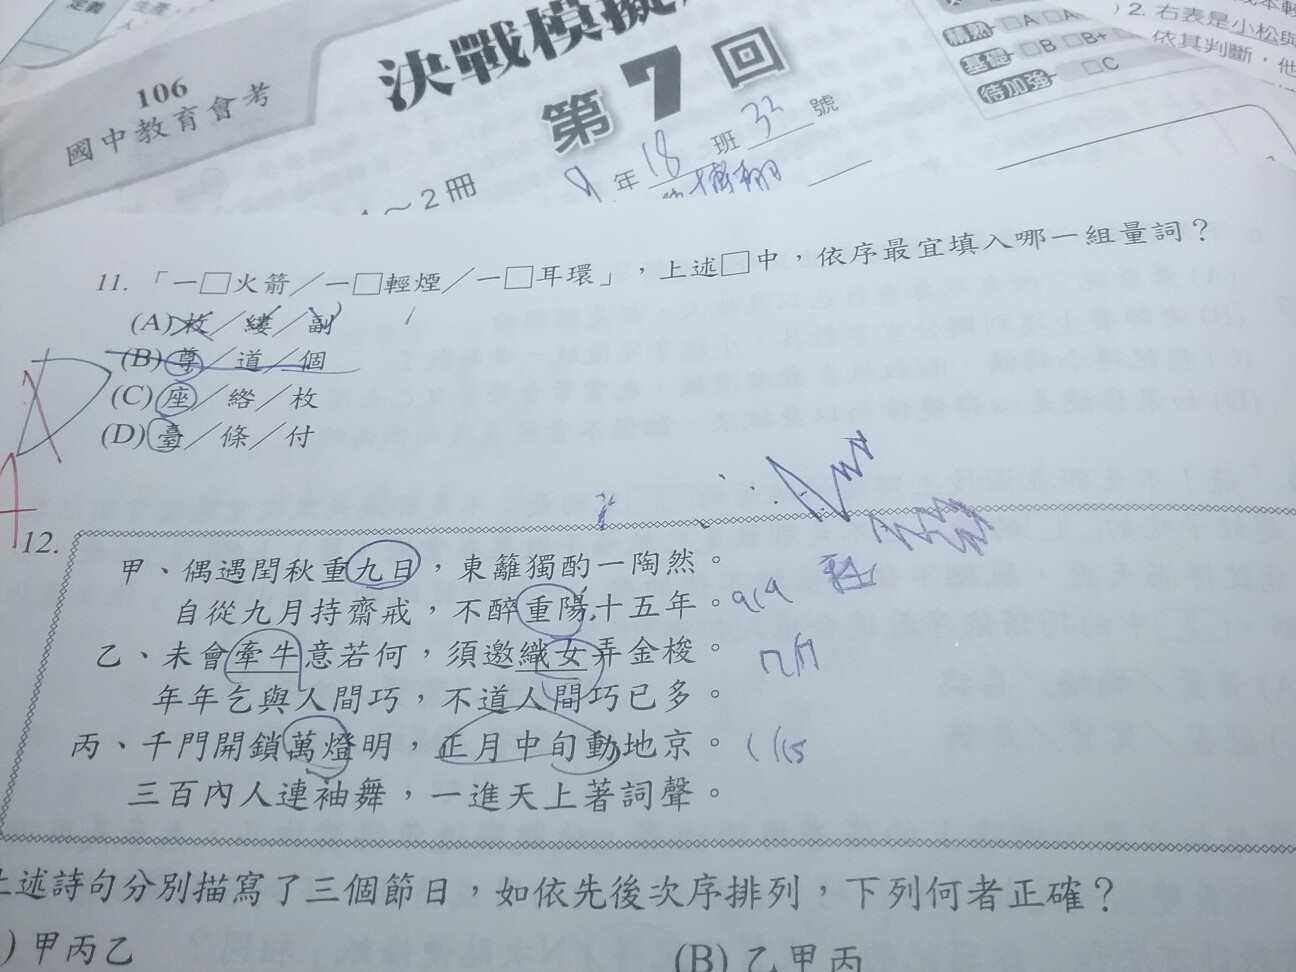 定義
106
國中教育會考
決戰模擬
第7回
精熟 □A
基礎 □B □B+
待加強 □C
2. 右表是小松與
依其判斷，他
～2冊
9年18班33號
11.「一□火箭／一□輕煙／一□耳環」，上述□中，依序最宜填入哪一組量詞？
(A)枚／縷／副
(B)尊／道／個
(C)座／綹／枚
(D)臺／條／付
12.
甲、偶遇閏秋重九日，東籬獨酌一陶然。
自從九月持齋戒，不醉重陽十五年。
9/9
乙、未會牽牛意若何，須邀織女弄金梭。
7/7
年年乞與人間巧，不道人間巧已多。
丙、千門開鎖萬燈明，正月中旬動地京。
1/15
三百內人連袖舞，一進天上著詞聲。
上述詩句分別描寫了三個節日，如依先後次序排列，下列何者正確？
)甲丙乙
(B)乙甲丙